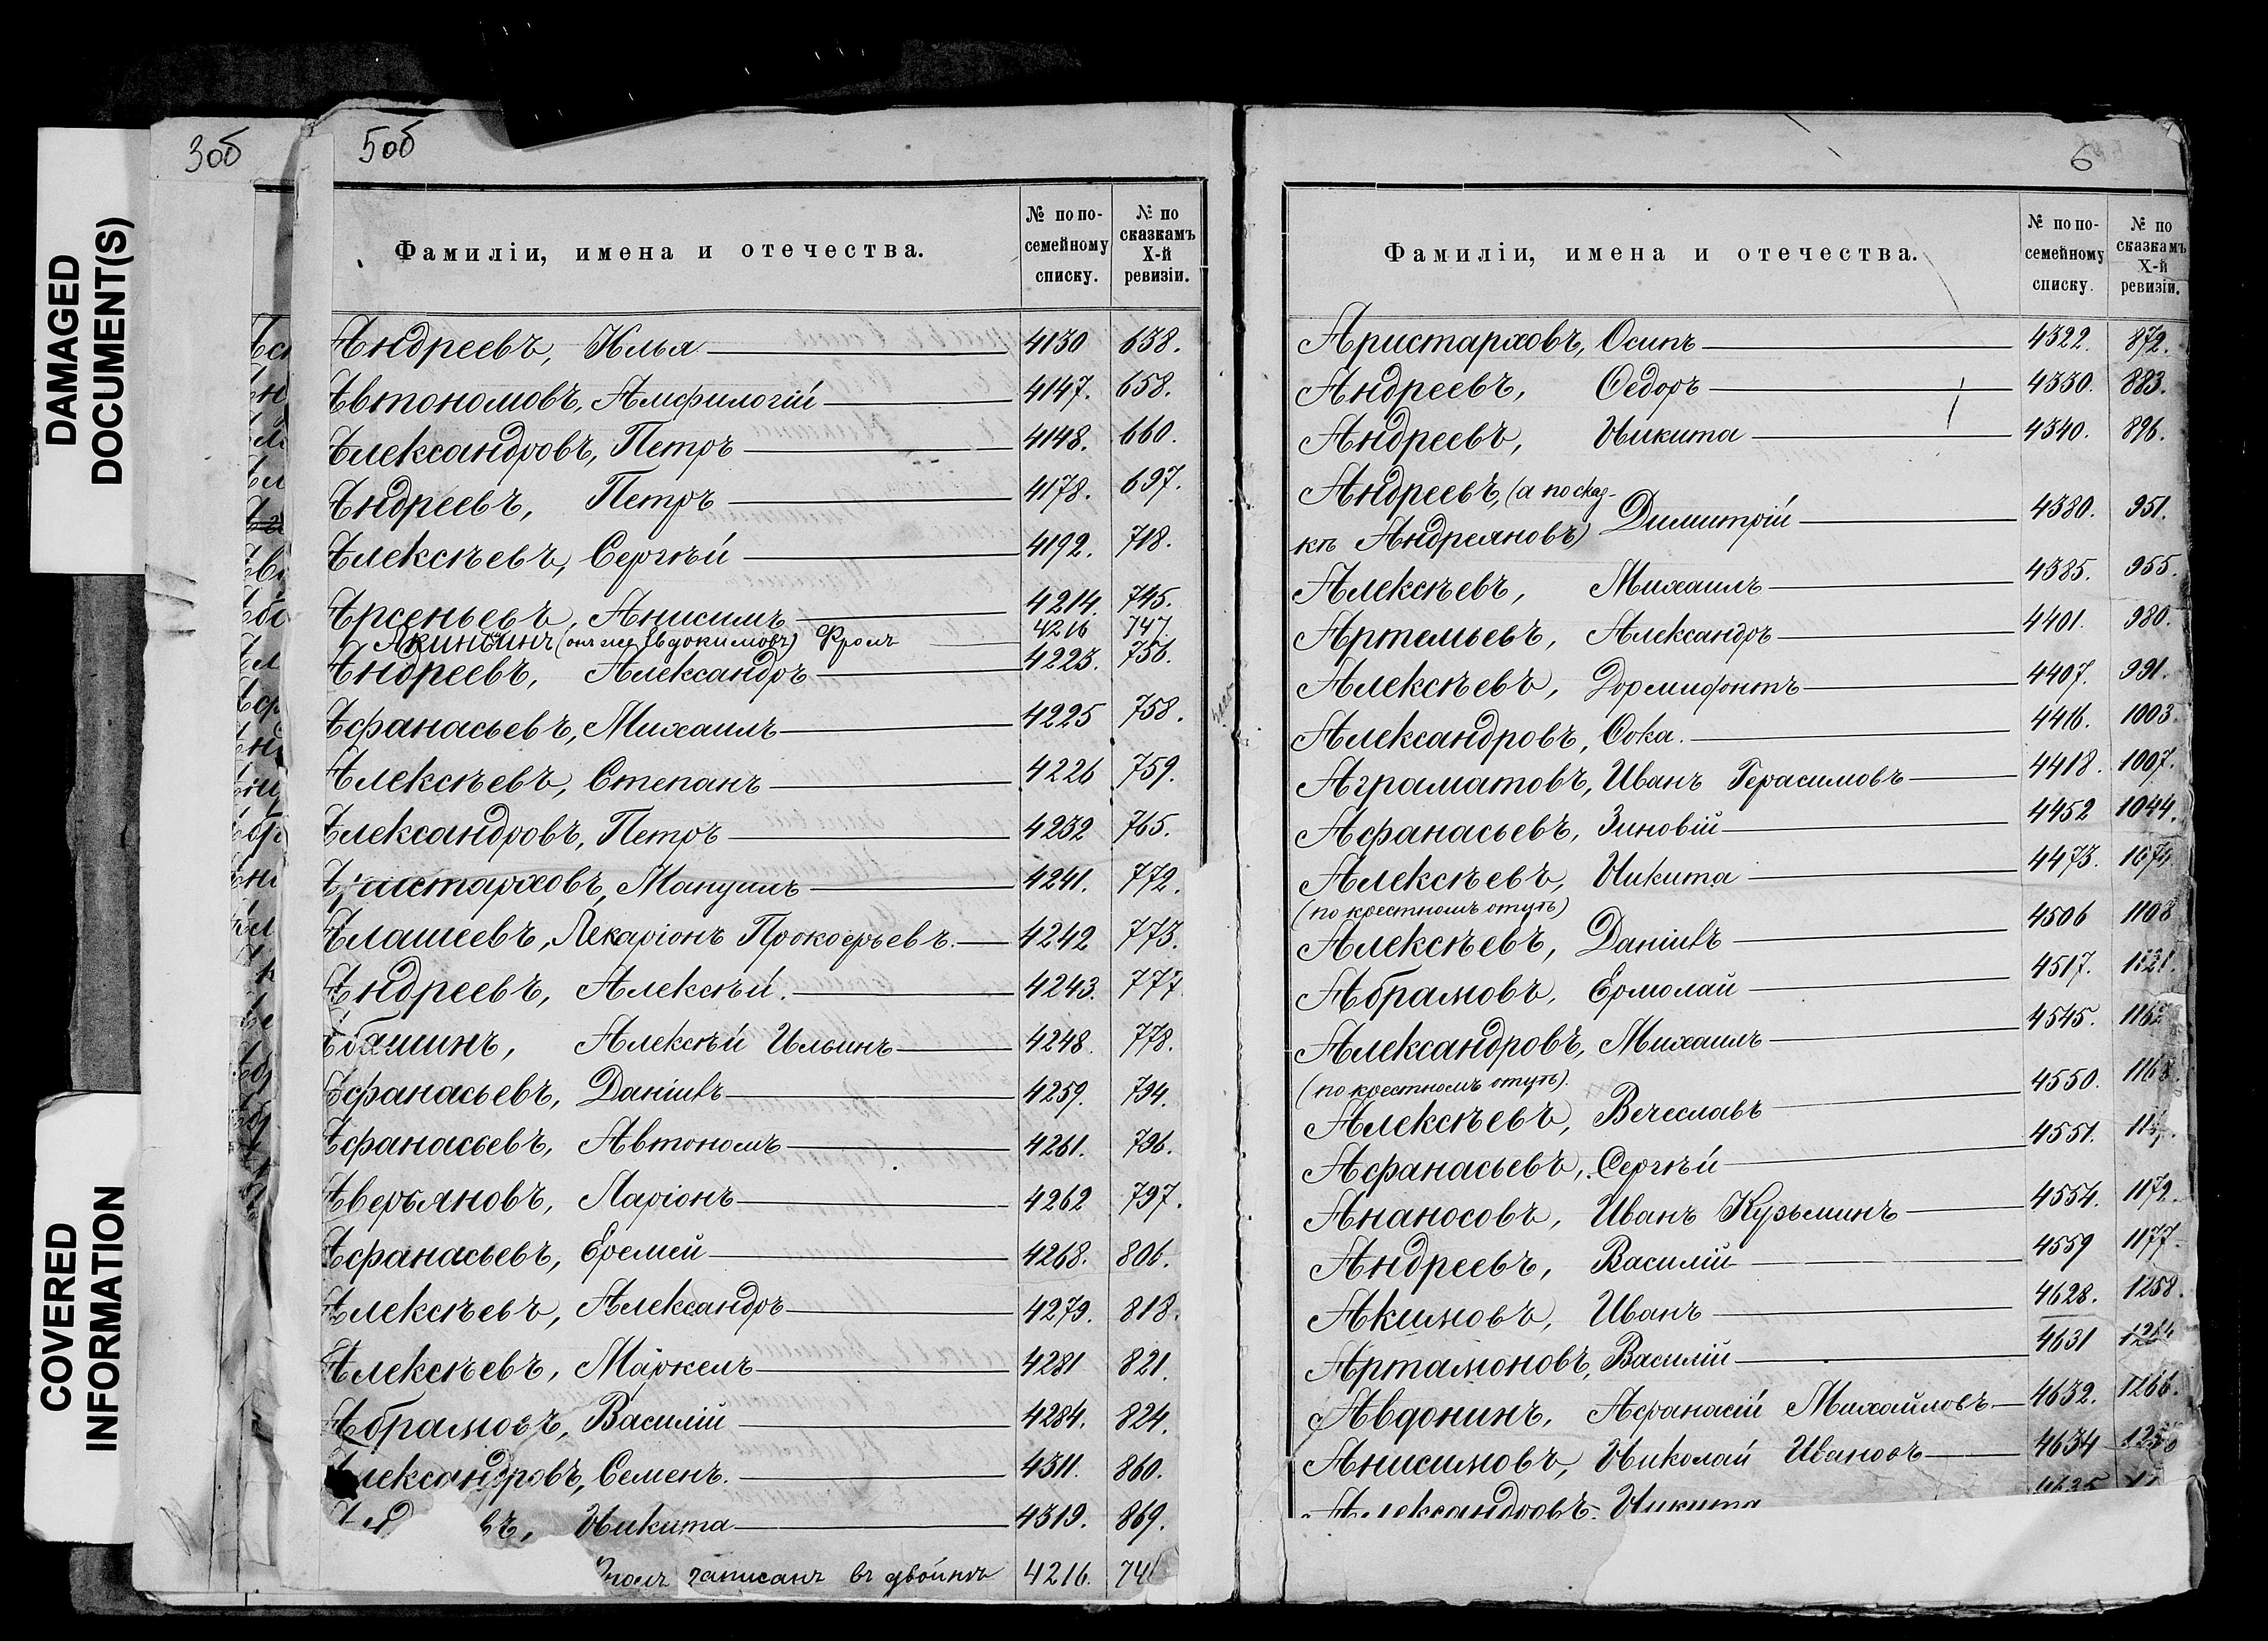 DAMAGED
DOCUMENT(S)
COVERED
INFORMATION
3об
5об
Фамиліи, имена и отечества.
№ по по-
семейному
списку.
№ по
сказкамъ
X-й
ревизіи.
Андреевъ, Илья 4130 638.
Автономовъ, Амфилогій 4147. 658.
Александровъ, Петръ 4148. 660.
Андреевъ, Петръ 4178. 697.
Алексѣевъ, Сергѣй 4192. 718.
Арсеньевъ, Анисимъ 4214. 745.
Акиньинъ (онъ же Евдокимовъ) Фролъ 4216 747
Андреевъ, Александръ 4223. 756.
Афанасьевъ, Михаилъ 4225 758.
Алексѣевъ, Степанъ 4226 759.
Александровъ, Петръ 4232 765.
Аристарховъ, Мануилъ 4241. 772.
Алашеевъ, Лекаріонъ Прокофьевъ. 4242 773.
Андреевъ, Алексѣй. 4243. 777
Абашинъ, Алексѣй Ильинъ 4248. 778.
Афанасьевъ, Даніилъ 4259. 794.
Афанасьевъ, Автономъ 4261. 796.
Аверьяновъ, Ларіонъ 4262 797.
Афанасьевъ, Еремей 4268. 806.
Алексѣевъ, Александръ 4279. 818.
Алексѣевъ, Маркелъ 4281 821.
Абрамовъ, Василій 4284. 824.
Александровъ, Семенъ. 4311. 860.
въ, Никита 4319. 869.
записанъ въ двойнѣ 4216.
6
Фамиліи, имена и отечества.
№ по по-
семейному
списку.
№ по
сказкамъ
X-й
ревизіи.
Аристарховъ, Осипъ 4322. 872.
Андреевъ, Ѳедоръ 4330. 883.
Андреевъ, Никита 4340. 896.
Андреевъ, (а по сказ-
кѣ Андреяновъ) Димитрій 4380. 951.
Алексѣевъ, Михаилъ 4385. 955.
Артемьевъ, Александръ 4401. 980.
Алексѣевъ, Дормифонтъ 4407. 991.
Александровъ, Ѳока. 4416. 1003.
Аграматовъ, Иванъ Герасимовъ 4418. 1007.
Афанасьевъ, Зиновій 4452 1044.
Алексѣевъ, Никита 4473.
(по крестномъ отцѣ)
Алексѣевъ, Даніилъ 4506 1108
Абрамовъ, Ермолай 4517.
Александровъ, Михаилъ 4545.
(по крестномъ отцѣ).
Алексѣевъ, Вечеславъ 4550. 1168.
Афанасьевъ, Сергѣй 4551.
Ананосовъ, Иванъ Кузьминъ 4554. 1172.
Андреевъ, Василій 4559 1177.
Акимовъ, Иванъ 4628. 1258.
Артамоновъ, Василій 4631
Авдонинъ, Афанасій Михайловъ 4632. 1266.
Анисимовъ, Николай Ивановъ 4634
Александровъ. Никита 4635